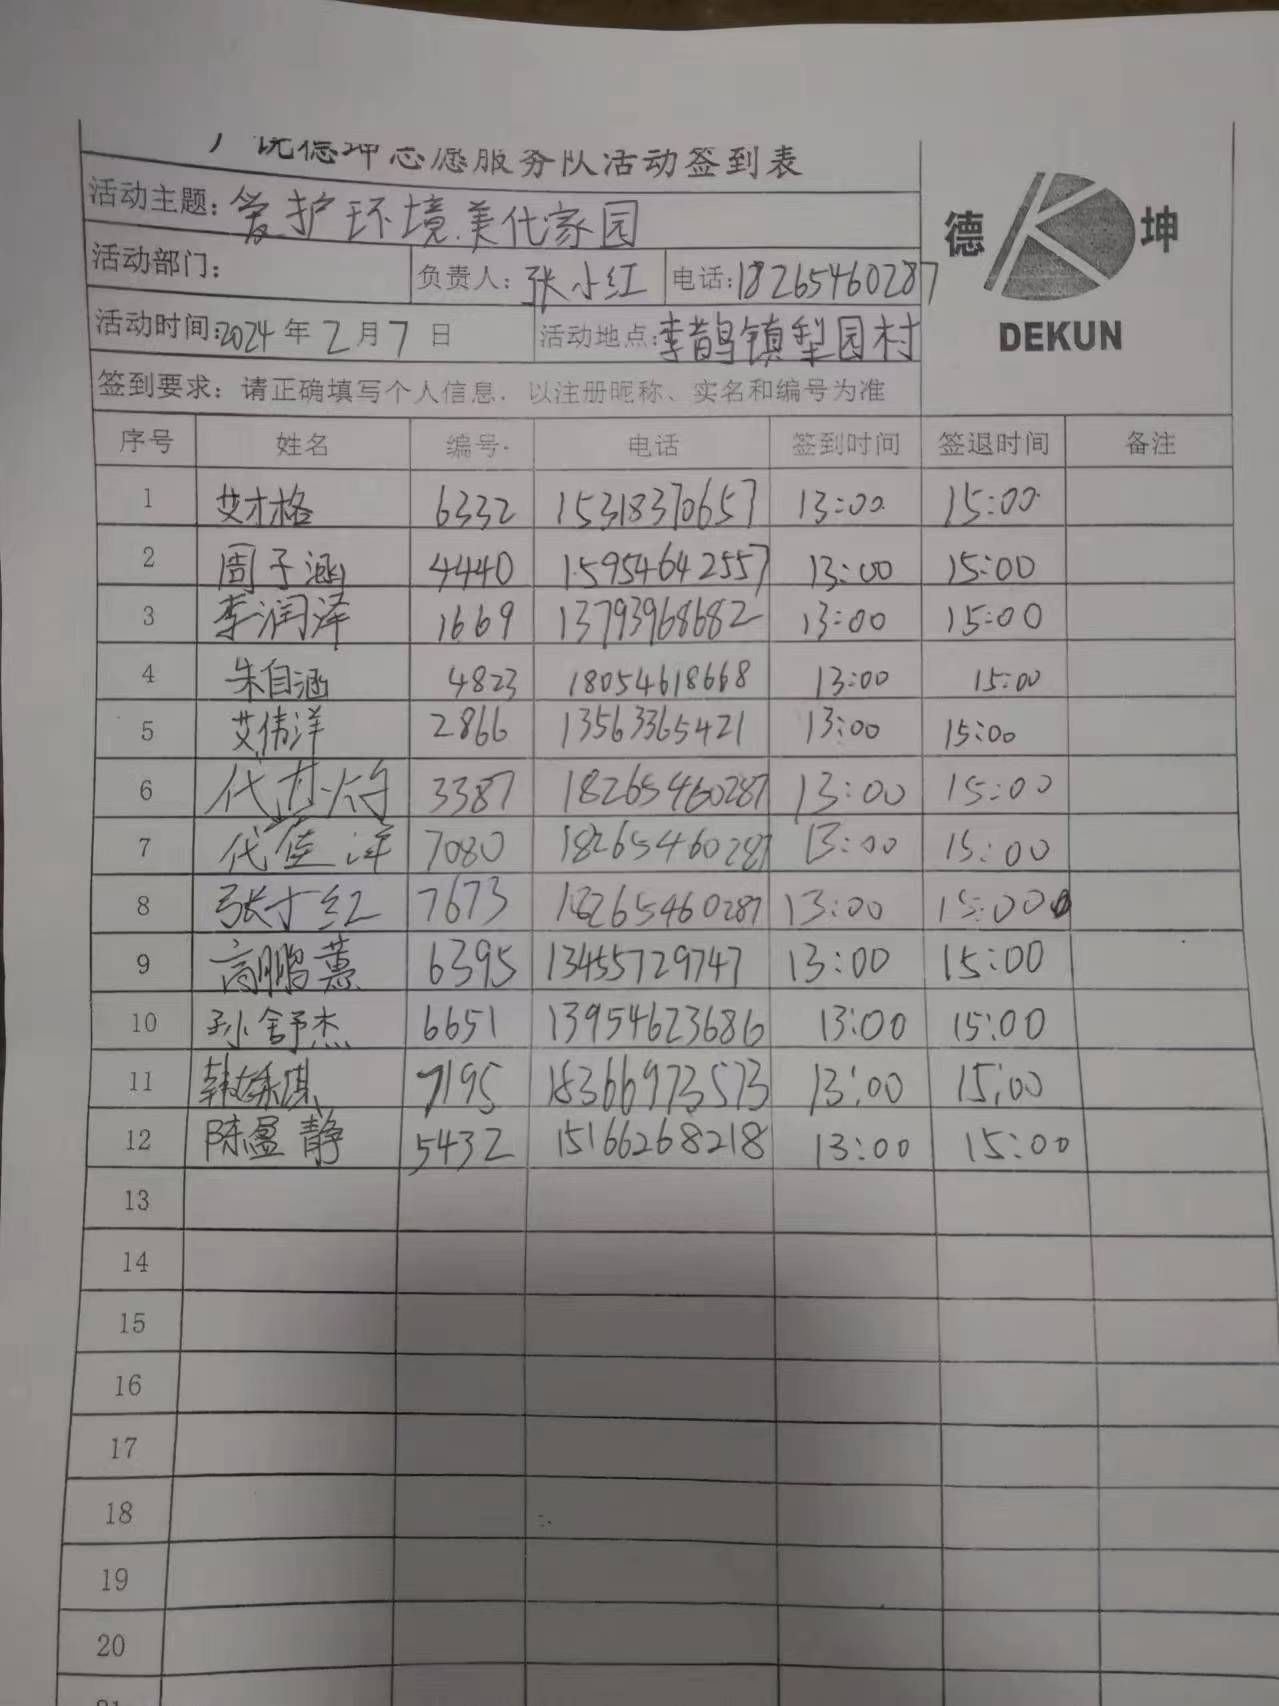 饶德坤志愿服务队活动签到表
德 坤
DEKUN
活动主题: 爱护环境美化家园
活动部门: 负责人: 张小红 电话: 18265460287
活动时间: 2024年2月7日 活动地点: 李鹊镇梨园村
签到要求: 请正确填写个人信息, 以注册昵称、实名和编号为准
序号 姓名 编号 电话 签到时间 签退时间 备注
1 艾才格 6332 15318370657 13:00 15:00
2 周子涵 4440 15954642557 13:00 15:00
3 李润泽 1669 13793968682 13:00 15:00
4 朱自涵 4823 18054618668 13:00 15:00
5 艾伟洋 2866 13563365421 13:00 15:00
6 代 3387 18265460287 13:00 15:00
7 代佳洋 7080 18265460287 13:00 15:00
8 张小红 7673 18265460287 13:00 15:00
9 高鹏蕙 6395 13455729747 13:00 15:00
10 孙舒杰 6651 13954623686 13:00 15:00
11 韩 7195 18366973573 13:00 15:00
12 陈盈静 5432 15166268218 13:00 15:00
13
14
15
16
17
18
19
20